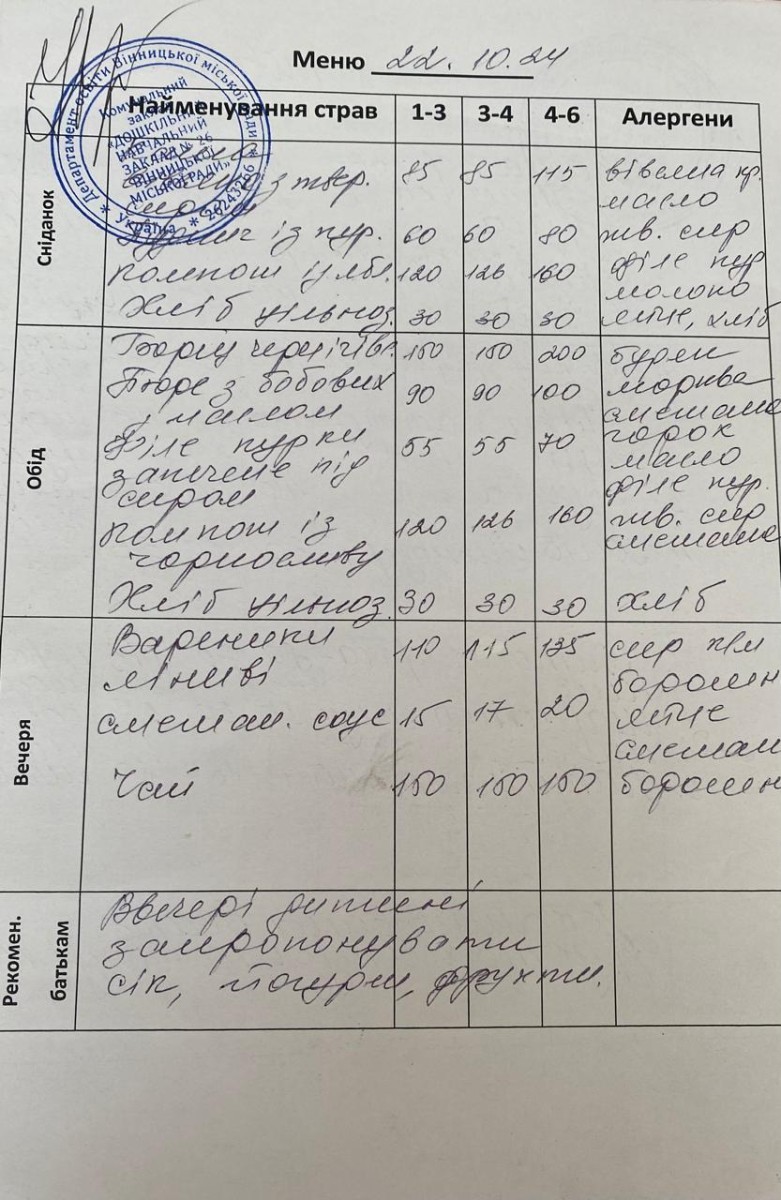 Меню 22.10.24
Найменування страв 1-3 3-4 4-6 Алергени
Департамент освіти Вінницької міської ради
Україна * 26243266 *
Комунальний
заклад
«ДОШКІЛЬНИЙ
НАВЧАЛЬНИЙ
ЗАКЛАД № 26
ВІННИЦЬКОЇ
МІСЬКОЇ РАДИ»
Сніданок
з твр. 85 85 115 вівсяна кр.
масло
із кур. 60 60 80 тв. сир
філе кур
компот із ябл. 120 126 160 молоко
Хліб цільноз. 30 30 30 яйце, хліб
Обід
Борщ чернігів. 150 150 200 буряк
Пюре з бобових 90 90 100 морква
з маслом сметана
філе курки 55 55 70 горох
запечене під масло
сиром філе кур.
компот із 120 126 160 тв. сир
чорносливу сметана
Хліб цільноз. 30 30 30 хліб
Вечеря
Вареники 110 115 135 сир к/м
ліниві борошн
сметан. соус 15 17 20 яйце
сметан
Чай 150 150 150 борошн
Рекомен.
батькам
Ввечері дитині
запропонувати
сік, йогурт, фрукти.